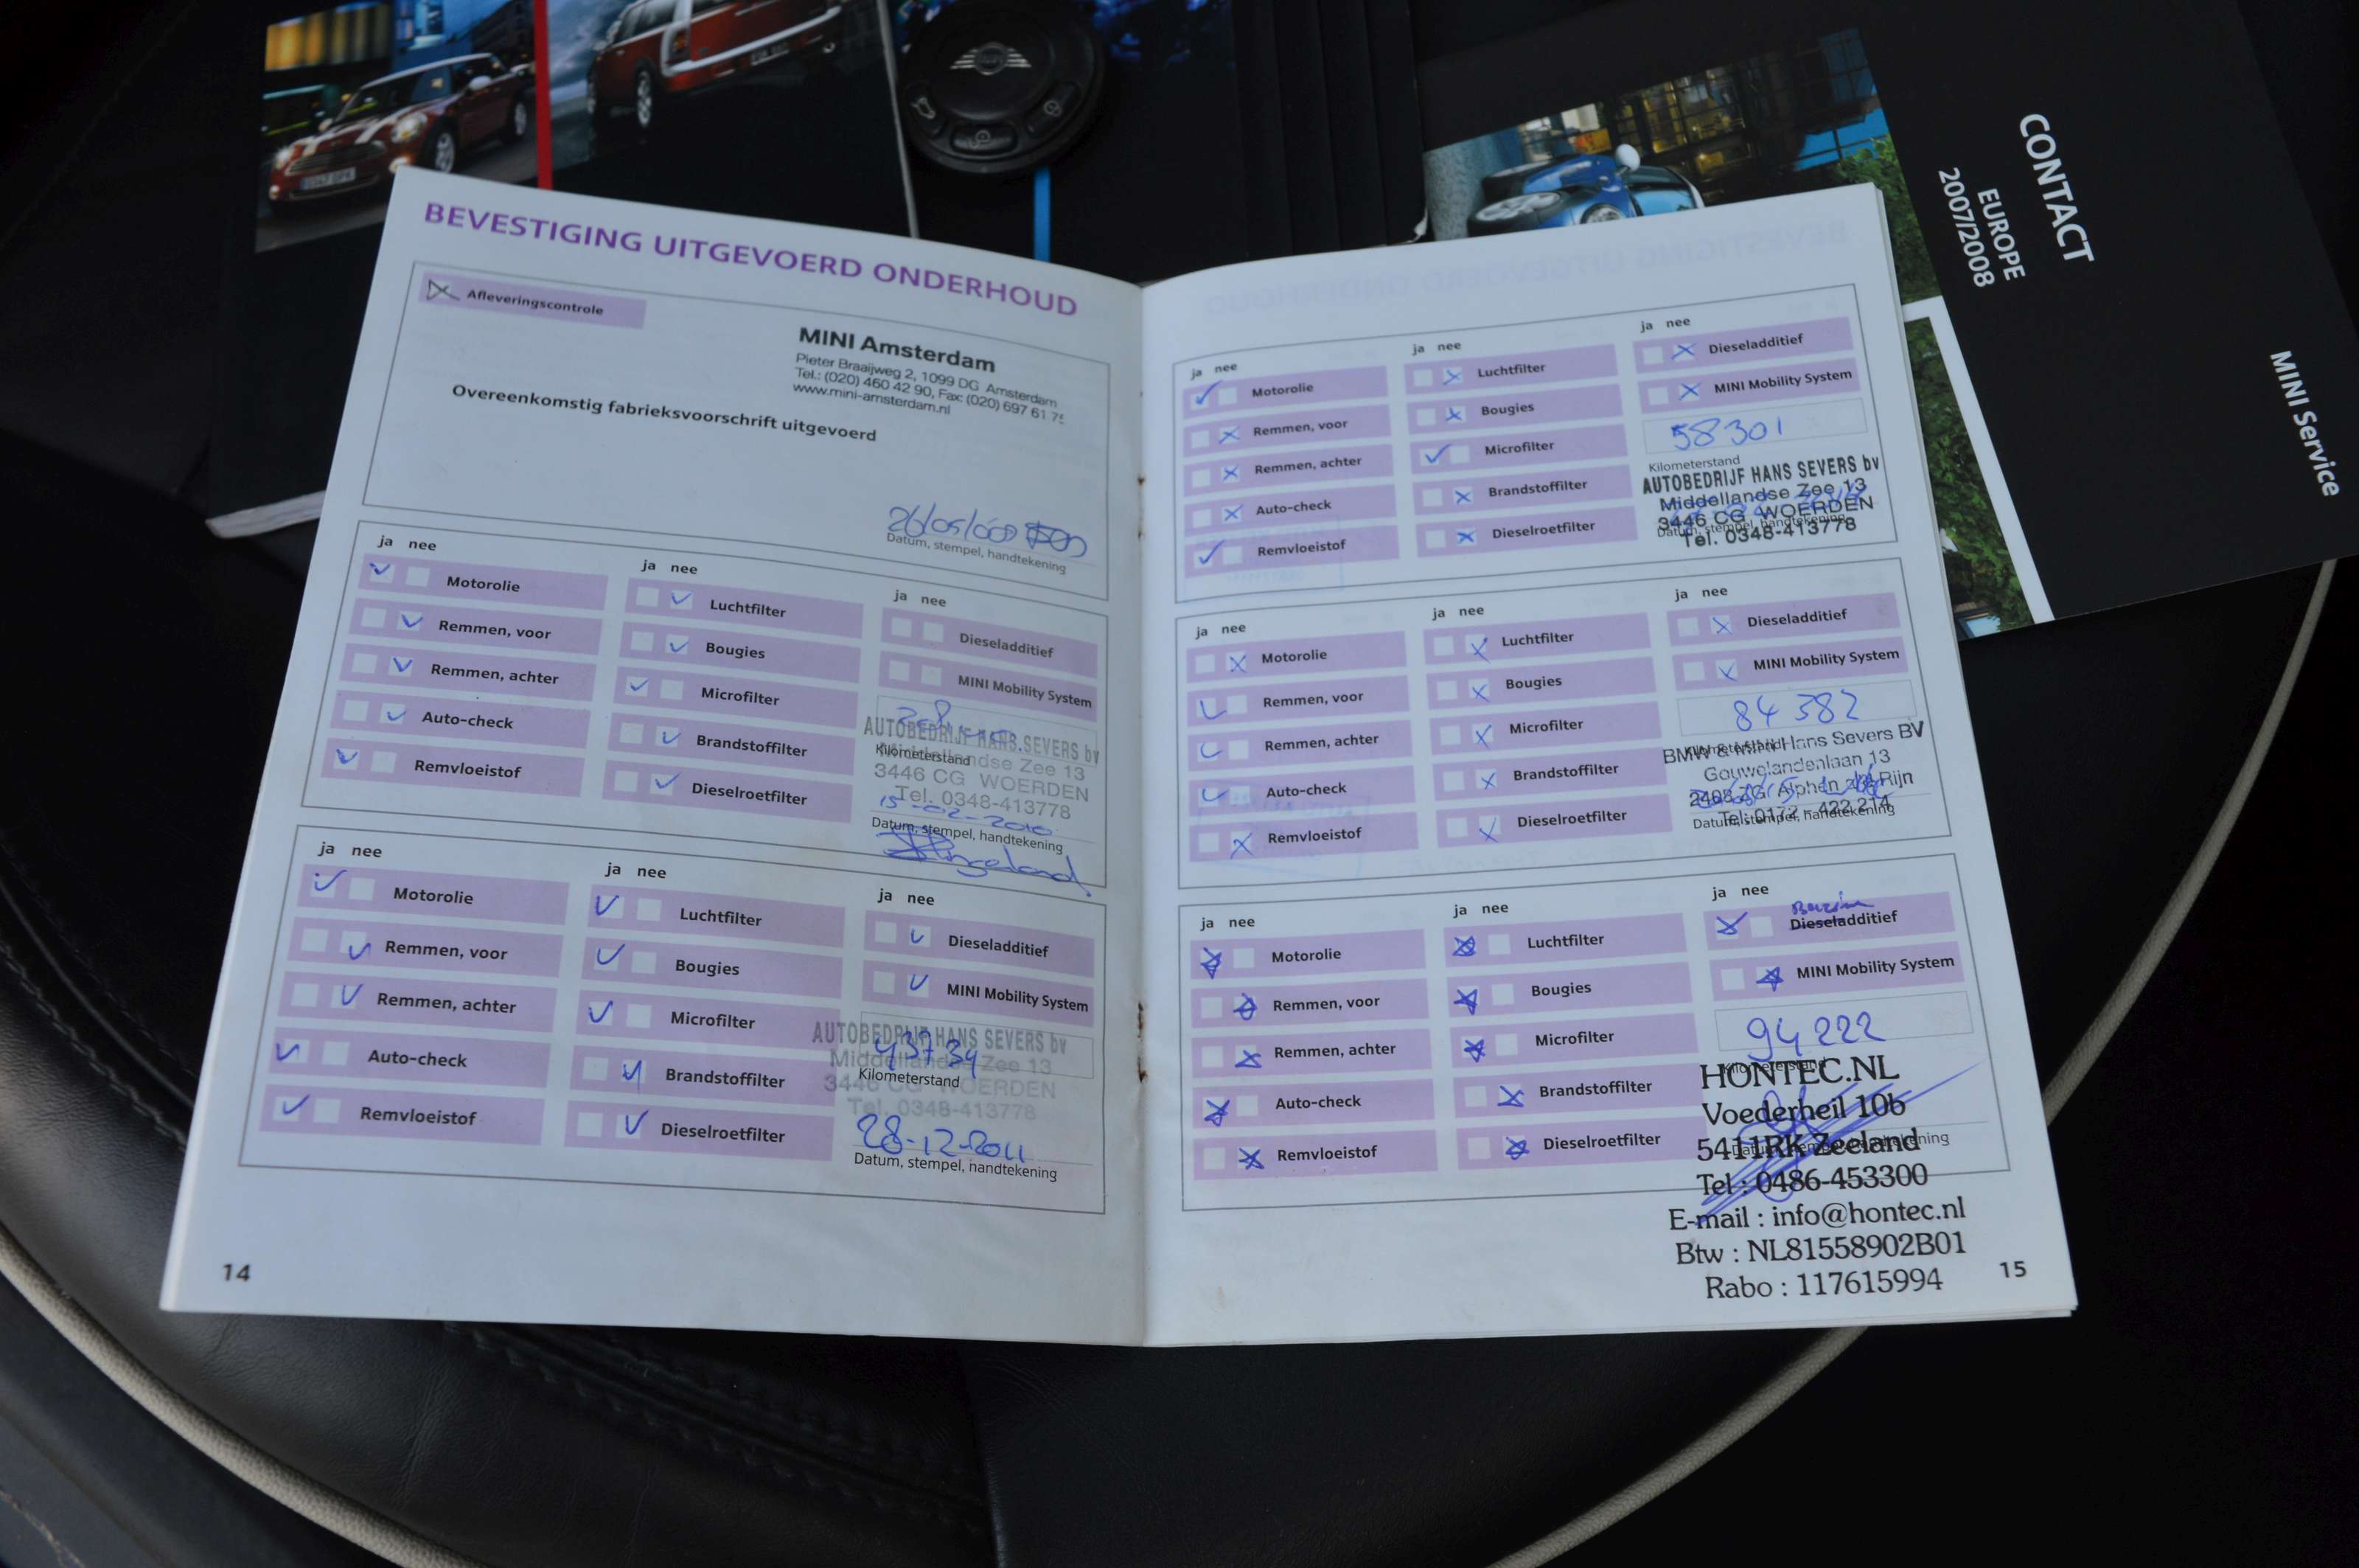 CONTACT
EUROPE
2007/2008
MINI Service
BEVESTIGING UITGEVOERD ONDERHOUD
Afleveringscontrole
MINI Amsterdam
Pieter Braaijweg 2, 1099 DG Amsterdam
Tel.: (020) 460 42 90, Fax: (020) 697 61 75
www.mini-amsterdam.nl
Overeenkomstig fabrieksvoorschrift uitgevoerd
Datum, stempel, handtekening
ja nee
Motorolie
Remmen, voor
Remmen, achter
Auto-check
Remvloeistof
ja nee
Luchtfilter
Bougies
Microfilter
Brandstoffilter
Dieselroetfilter
ja nee
Dieseladditief
MINI Mobility System
AUTOBEDRIJF HANS SEVERS bv
Kilometerstand
Zee 13
3446 CG WOERDEN
Tel. 0348-413778
15-02-2010
Datum, stempel, handtekening
ja nee
Motorolie
Remmen, voor
Remmen, achter
Auto-check
Remvloeistof
ja nee
Luchtfilter
Bougies
Microfilter
Brandstoffilter
Dieselroetfilter
ja nee
Dieseladditief
MINI Mobility System
AUTOBEDRIJF HANS SEVERS bv
43734
Middellandse Zee 13
Kilometerstand
3446 CG WOERDEN
Tel. 0348-413778
28-12-2011
Datum, stempel, handtekening
14
ja nee
Motorolie
Remmen, voor
Remmen, achter
Auto-check
Remvloeistof
ja nee
Luchtfilter
Bougies
Microfilter
Brandstoffilter
Dieselroetfilter
ja nee
Dieseladditief
MINI Mobility System
58301
Kilometerstand
AUTOBEDRIJF HANS SEVERS bv
Middellandse Zee 13
3446 CG WOERDEN
Datum, stempel, handtekening
Tel. 0348-413778
ja nee
Motorolie
Remmen, voor
Remmen, achter
Auto-check
Remvloeistof
ja nee
Luchtfilter
Bougies
Microfilter
Brandstoffilter
Dieselroetfilter
ja nee
Dieseladditief
MINI Mobility System
84382
Kilometerstand
BMW & MINI Hans Severs BV
Gouwelandenlaan 13
2408 ZG Alphen a/d Rijn
Tel: 0172 - 422 214
Datum, stempel, handtekening
ja nee
Motorolie
Remmen, voor
Remmen, achter
Auto-check
Remvloeistof
ja nee
Luchtfilter
Bougies
Microfilter
Brandstoffilter
Dieselroetfilter
ja nee
Dieseladditief
MINI Mobility System
94222
Kilometerstand
HONTEC.NL
Voederheil 10b
5411RK Zeeland
Datum, stempel, handtekening
Tel : 0486-453300
E-mail : info@hontec.nl
Btw : NL81558902B01
Rabo : 117615994
15